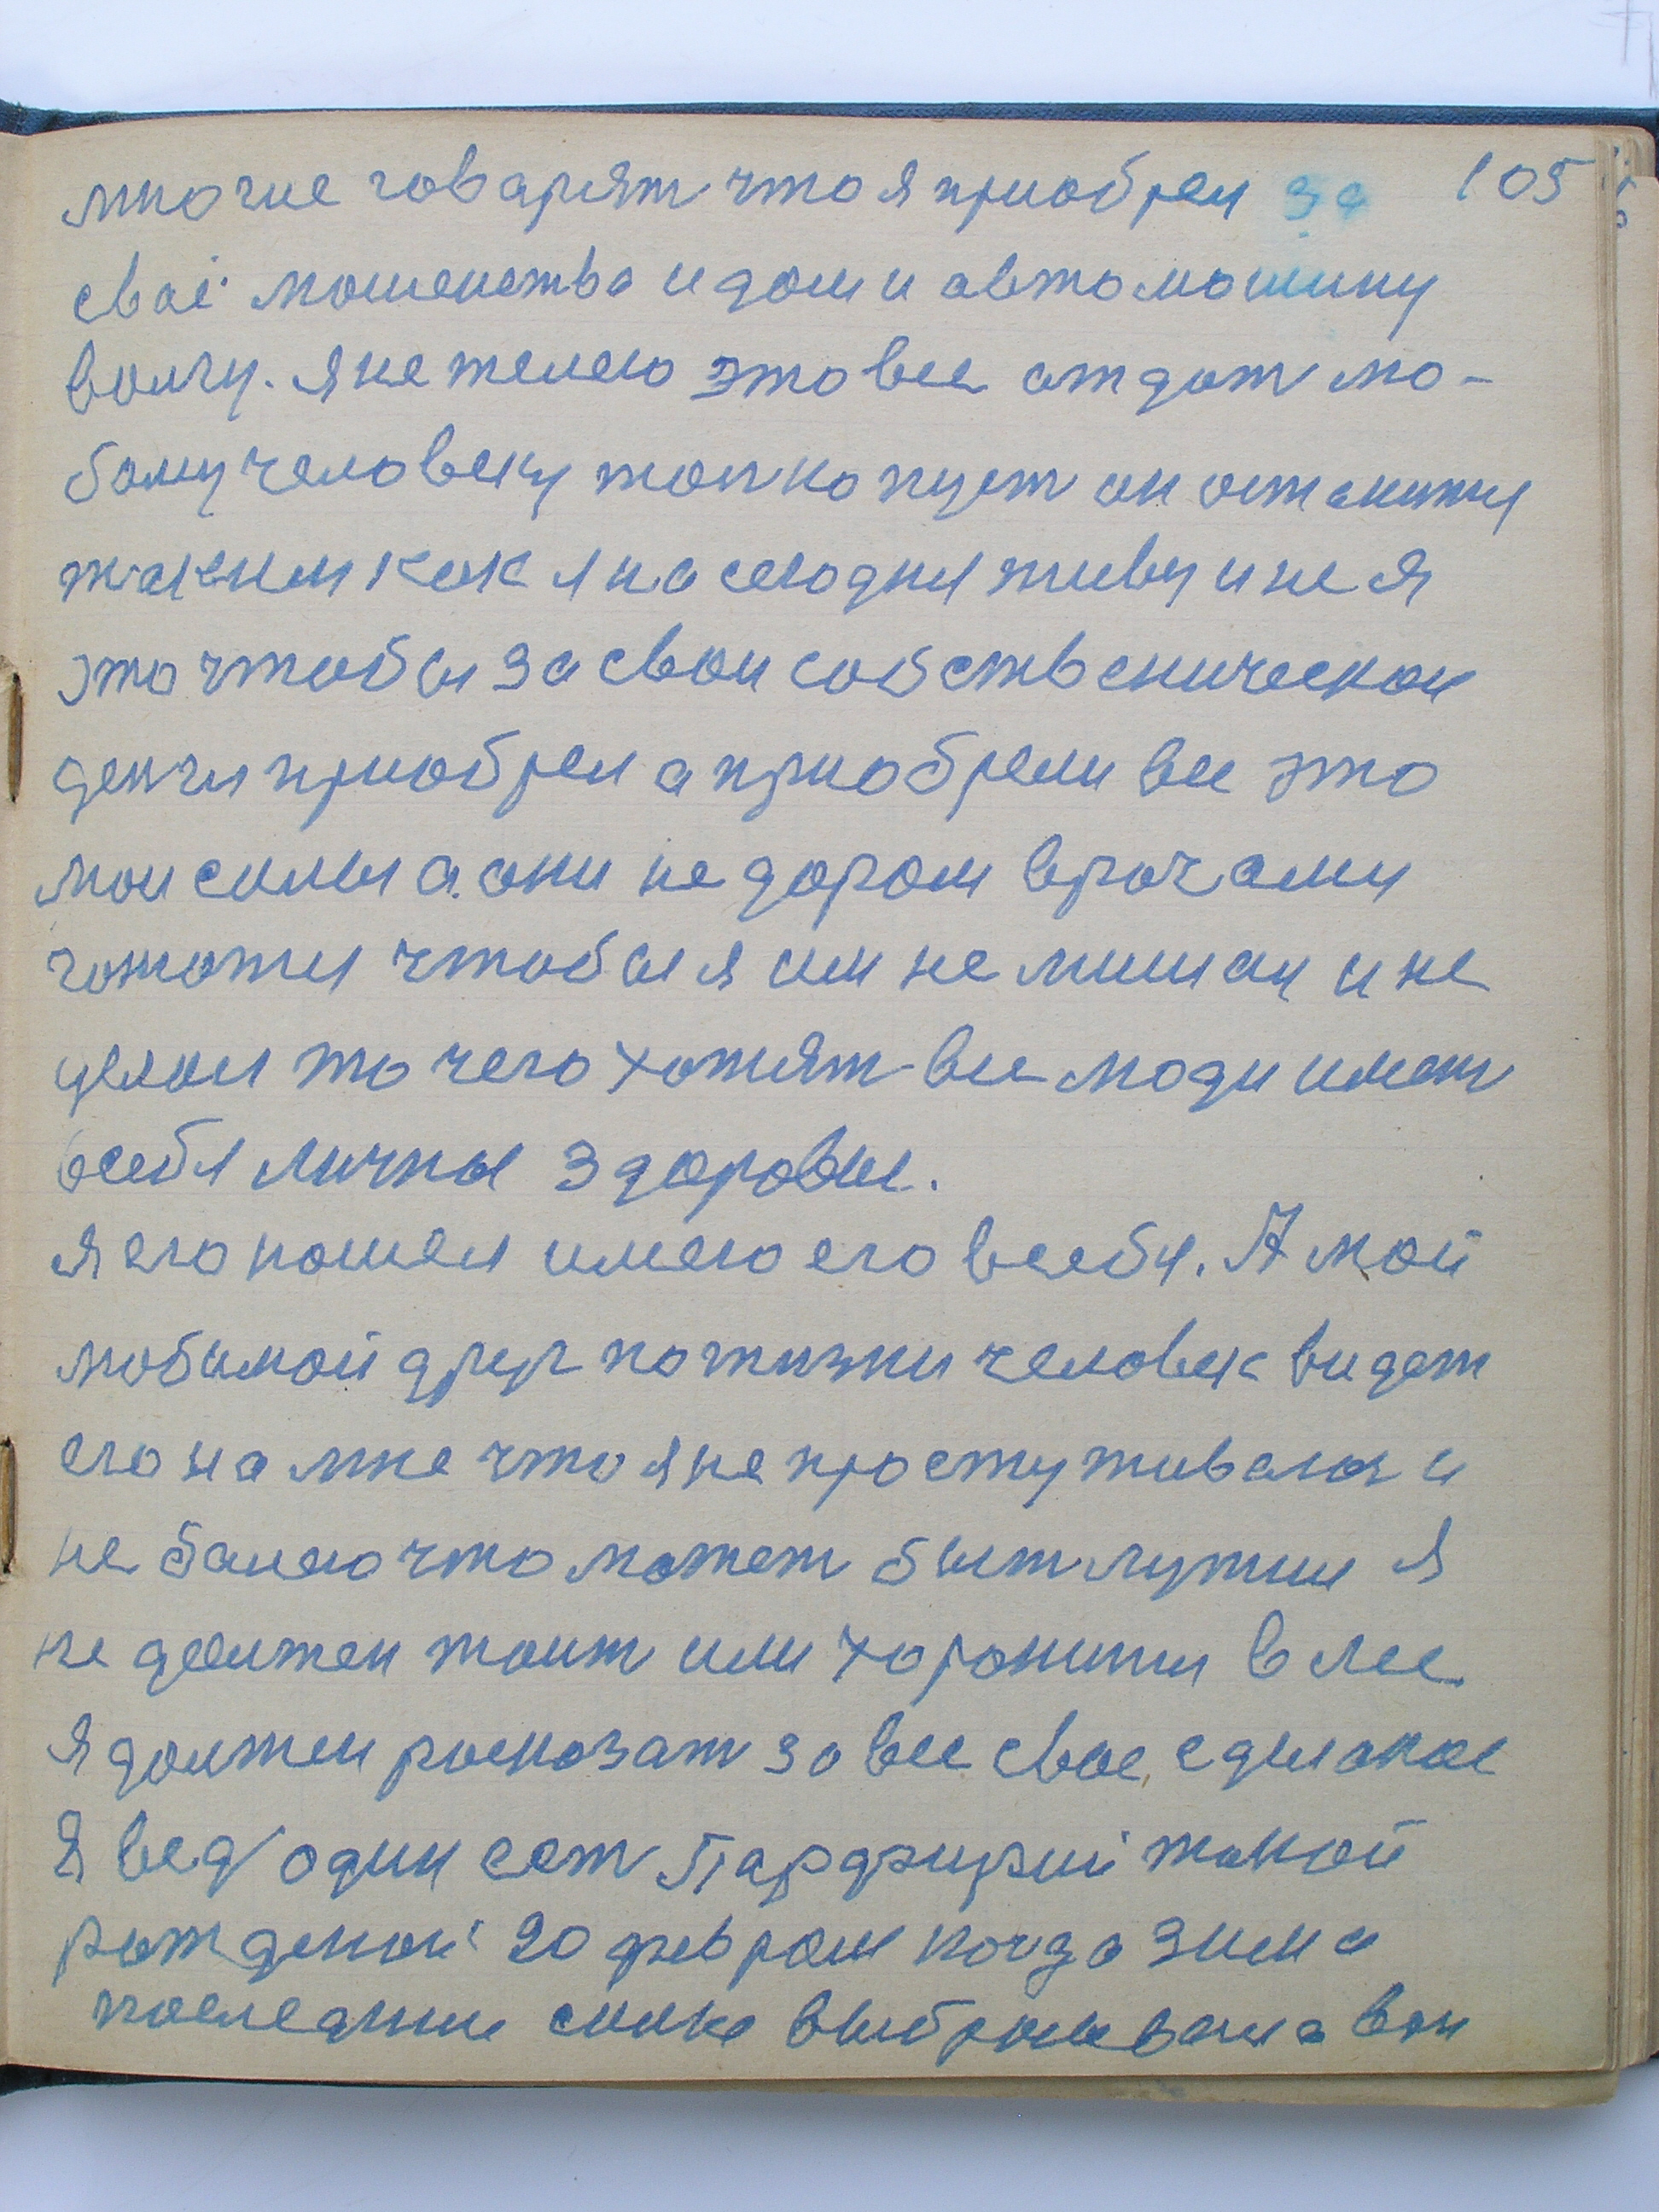 многие говарят что я приобрел за 105
своё мошенства и дом и автомошину
волгу. я не желею это все отдат лю-
бому человеку только пуст он останится
таким как я на сегодня живу и не я
это чтобы за свои собственическои
денги приобрел а приобрели все это
мои силы а они не даром врачами
чтобы я им не мишал и не
делал то чего хотят все люди имет
в себя личны здоровье.
я его нашел имею его в себя. А мой
любимой друг по жизни человек видет
его на мне что я не простуживаюс и
не балею что может быт лутши я
не должен таит или хоронится в лее
Я должен расказат за все свое сделаное
Я вед один сет Парфирий такой
рожденой 20 феврали когда зима
последнии силы выбрасовала вон